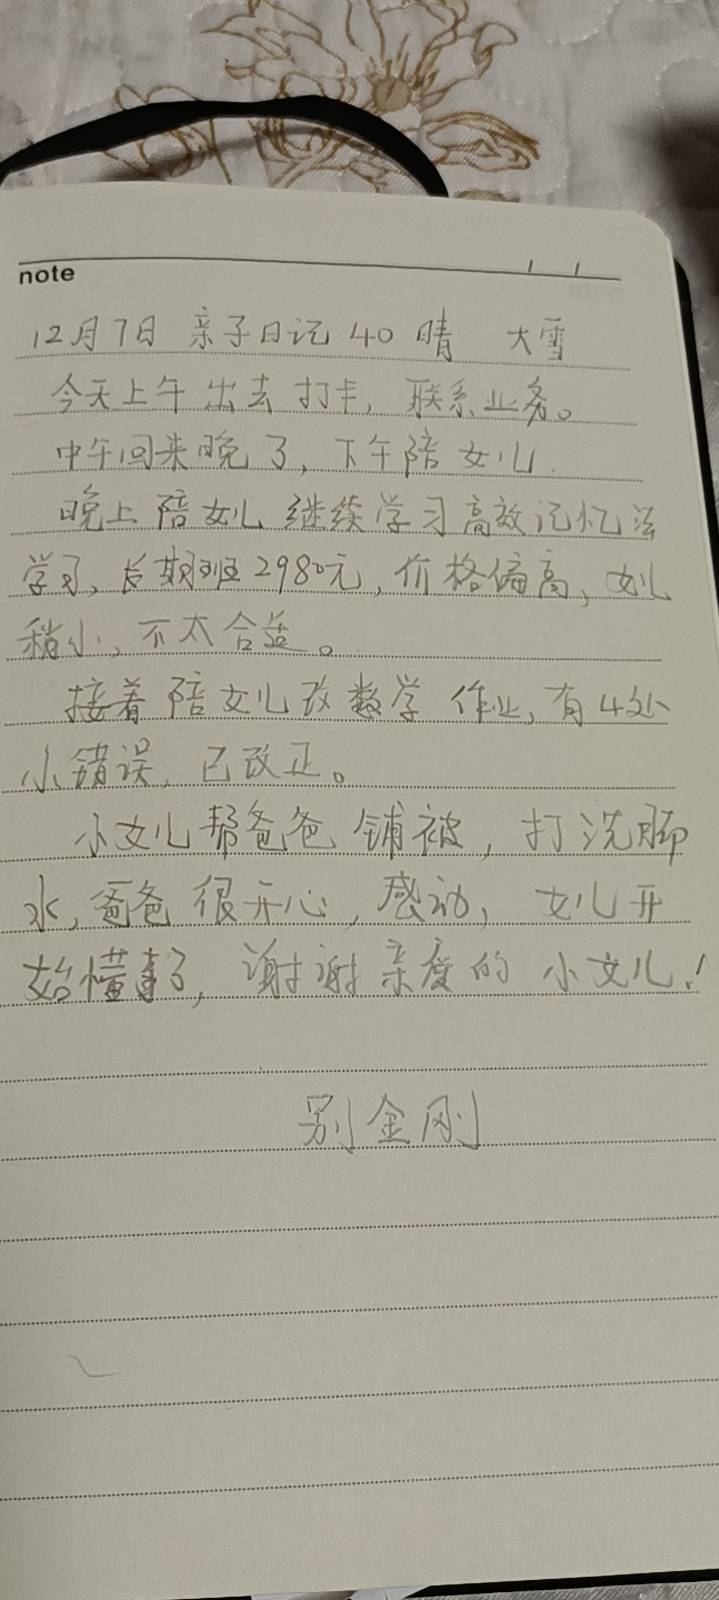 note
12月7日 亲子日记 40 晴 大雪
今天上午出去打卡, 联系业务。
中午回来晚了, 下午陪女儿.
晚上陪女儿继续学习高效记忆法
学习, 长期班2980元, 价格偏高, 女儿
稍小, 不太合适。
接着陪女儿改数学作业, 有4处
小错误, 已改正。
小女儿帮爸爸铺被, 打洗脚
水, 爸爸很开心, 感动, 女儿开
始懂事了, 谢谢亲爱的小女儿!
别金刚